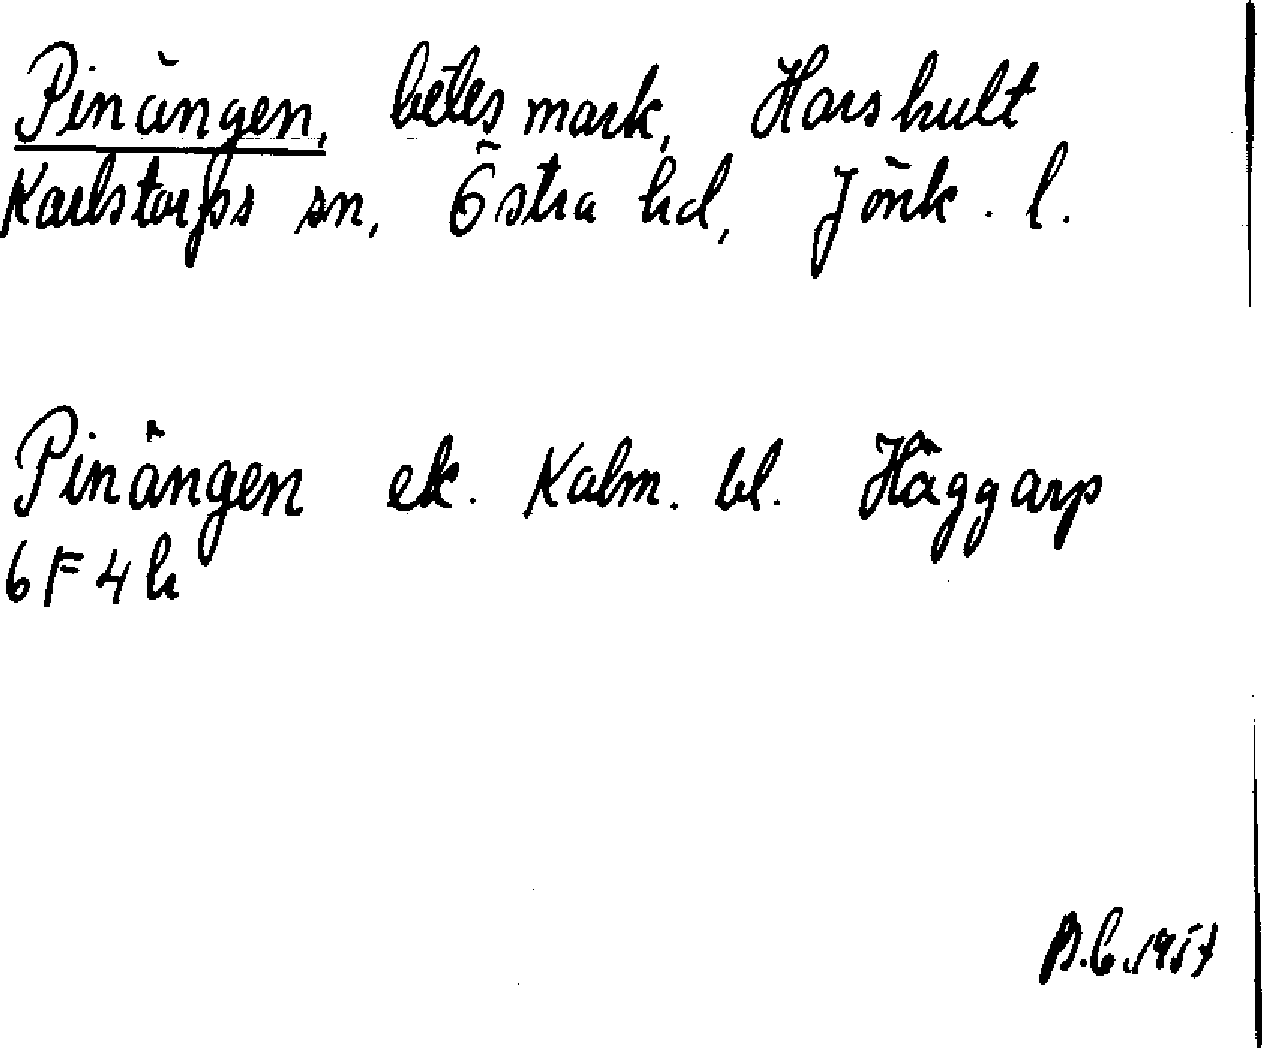 Pinängen, betesmark, Harshult
Karlstorps sn, Östra hd, Jönk. l.
Pinängen ek. Kalm. bl. Häggarp
6F4h
B.C. 1957